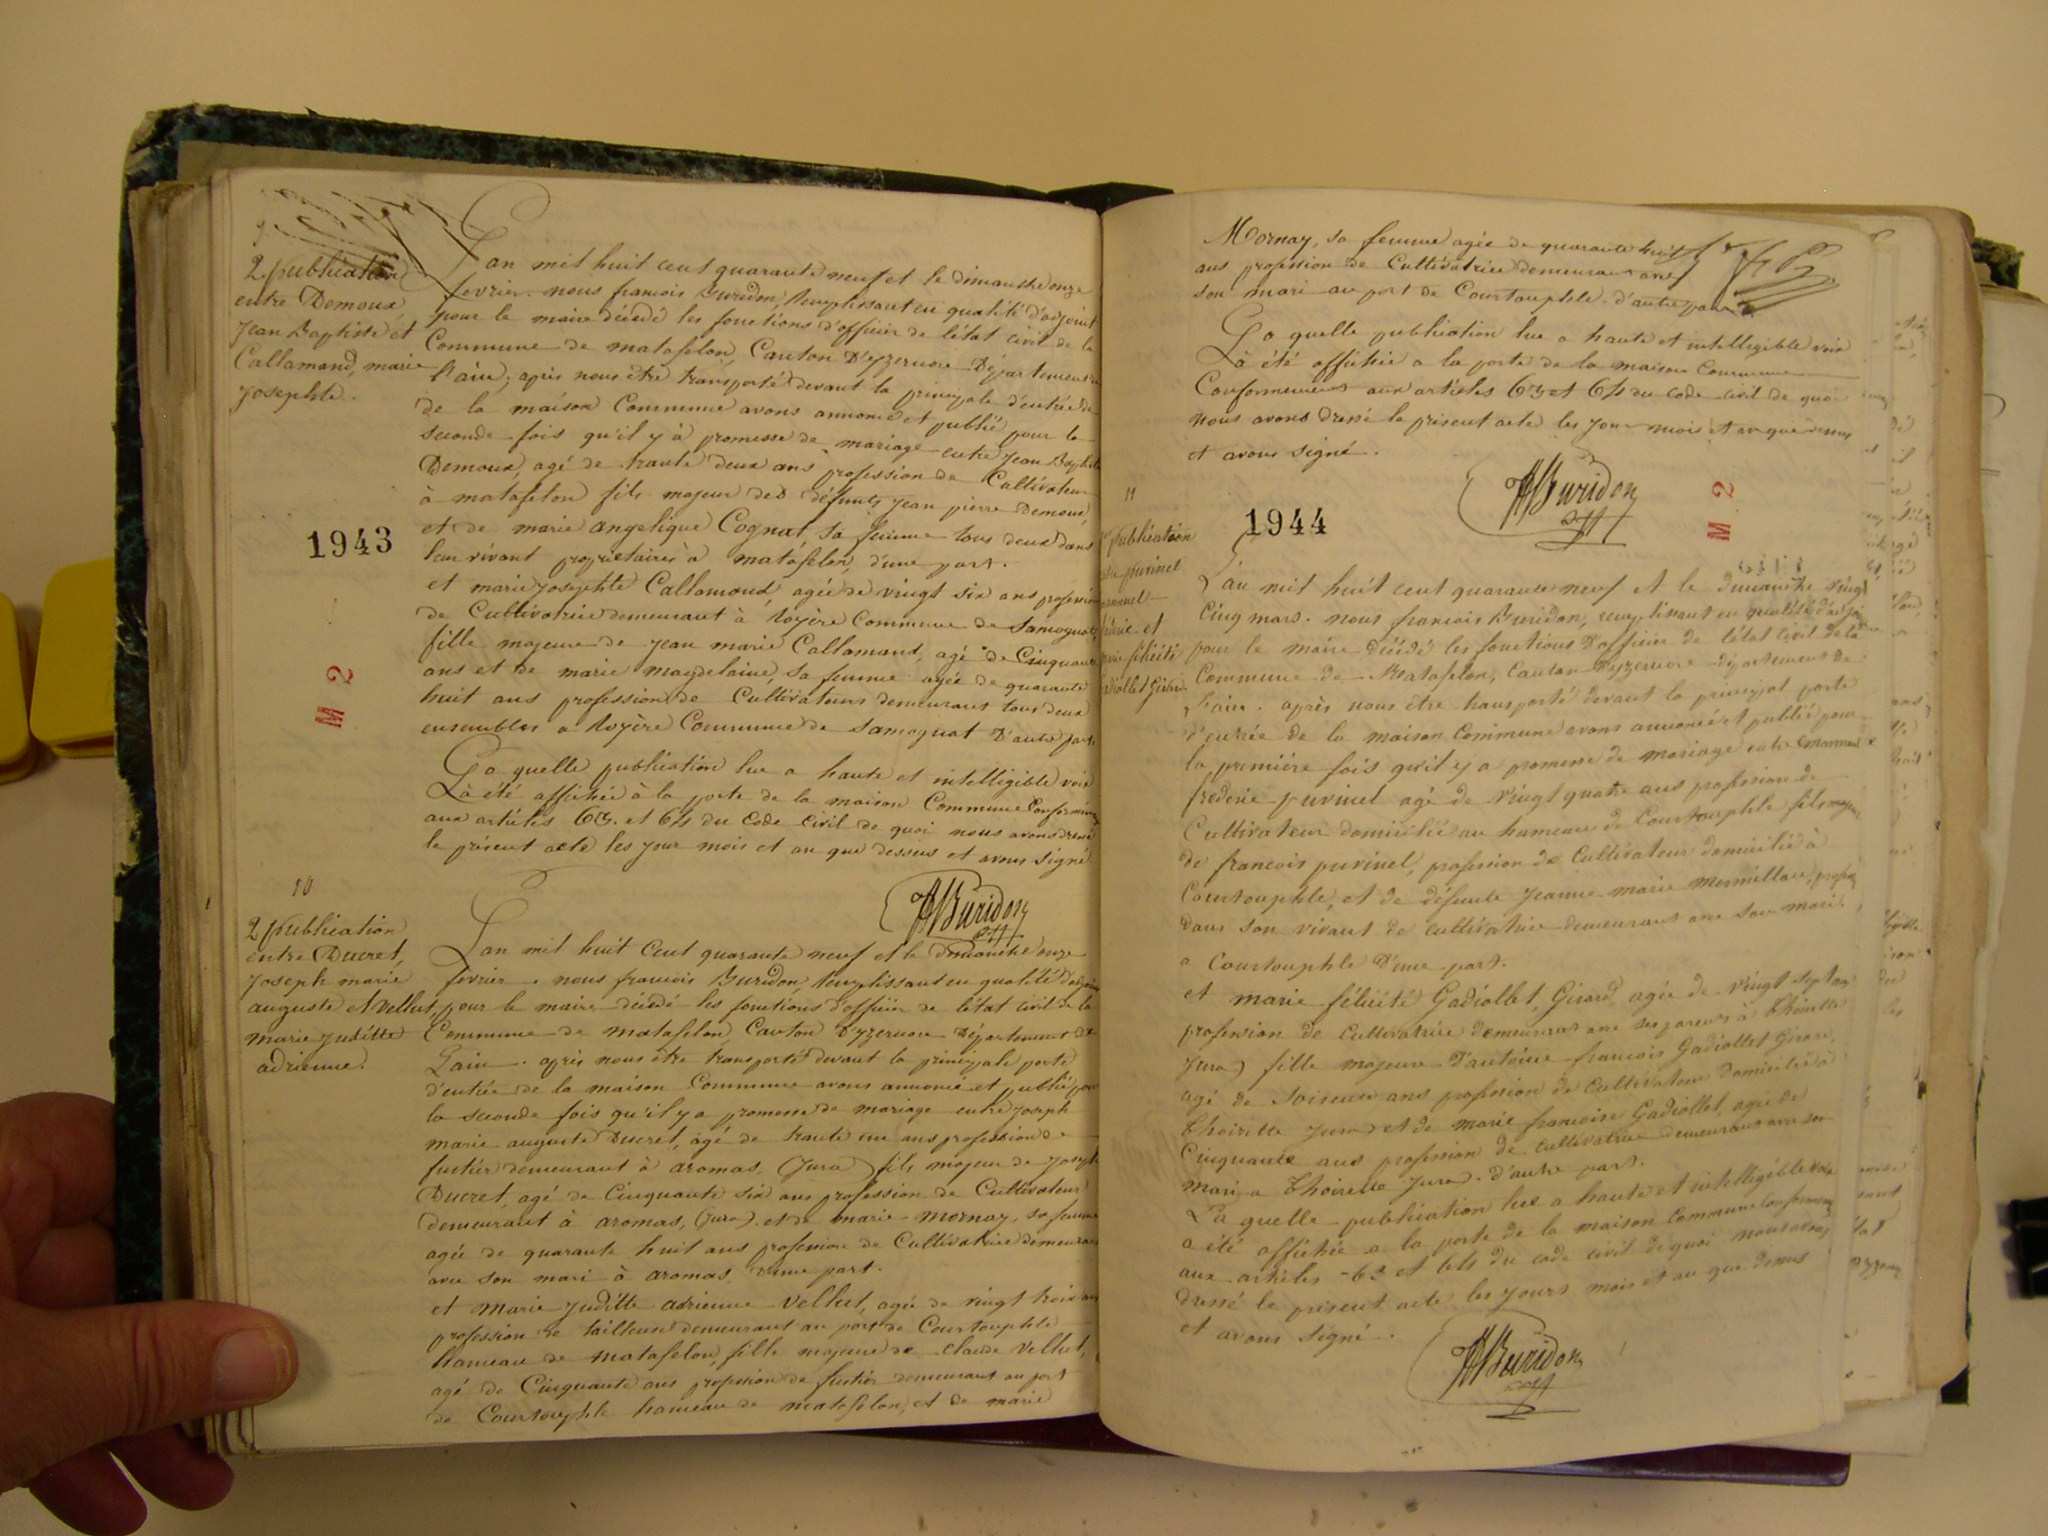 9
2 publication
entre Demoux,
Jean Baptiste et
Callamand, marie
Josephte.
L'an mil huit cent quarante neuf et le dimanche onze
fevrier. nous francois Buridon, remplissant en qualité d'adjoint
pour le maire décédé les fonctions d'officier de l'état civil de la
Commune de matafelon, Canton D'yzernore Département de
l'ain; après nous être transporté devant la principale d'entrée de
de la maison Commune avons annoncé et publié pour la
seconde fois qu'il y à promesse de mariage entre Jean Baptiste
Demoux, agé de trante deux ans profession de Cultivateur
à matafelon fils majeur des défunts Jean pierre Demoux,
et de marie angelique Cognat sa femme tous deux dans
leur vivant propriétaires à matafelon, d'une part.
et marie Josephte Callamand, agée de vingt six ans profession
de Cultivatrice demeurant à Royère Commune de Samognat
fille majeure de Jean marie Callamand, agé de Cinquante
ans et de marie magdelaine, sa femme agée de quarante
huit ans profession de Cultivateurs demeurant tous deux
ensembles a Royère Commune de Samognat D'autre part.
La quelle publication lue a haute et intelligible voix
à été affichée à la porte de la maison Commune Conformément
aux artilés 63. et 64 du Code Civil de quoi nous avons dressé
le présent acte les jour mois et an que dessus et avons signé.
Buridon
1943
M 2
10
2 publication
entre Ducret,
Joseph marie
auguste et Vellut,
marie Juditte
adrienne.
L'an mil huit Cent quarante neuf et le dimanche onze
fevrier. nous francois Buridon, remplissant en qualité d'adjoint
pour le maire décédé les fonctions d'officier de l'état civil de la
Commune de matafelon, Canton D'yzernore Département de
L'ain. après nous être transporté devant la principale porte
d'entrée de la maison Commune avons annoncé et publié pour
la seconde fois qu'il y a promesse de mariage entre Joseph
marie auguste Ducret, agé de trante un ans profession de
fustier demeurant à aromas, (Jura) fils majeur de Joseph
Ducret, agé de Cinquante six ans profession de Cultivateur
demeurant à aromas, (Jura). et de marie Mornay, sa femme
agée de quarante huit ans profession de Cultivatrice demeurant
avec son mari à aromas, d'une part.
et Marie Juditte adrienne Vellut, agée de vingt trois ans
profession de tailleuse demeurant au port de Courtouphle
hameau de matafelon, fille majeure de Claude Vellut,
agé de Cinquante ans profession de fustier demeurant au port
de Courtouphle hameau de matafelon, et de marie
Mornay, sa femme agée de quarante huit
ans profession de Cultivatrice demeurant avec
son mari au port de Courtouphle. d'autre part.
La quelle publication lue a haute et intelligible voix
à été affichée a la porte de la maison Commune
Conformément aux artilés 63 et 64 du code civil de quoi
nous avons dressé le présent acte les jour mois et an que dessus
et avons signé.
Buridon
1944
M 2
11
publication
purinel
et
félicité
Gadiollet Girard
L'an mil huit cent quarante neuf et le dimanche vingt
Cinq mars. nous francois Buridon, remplissant en qualité d'adjoint
pour le maire décédé les fonctions d'officier de l'état civil de la
Commune de Matafelon, Canton d'yzernore département de
l'ain. après nous être transporté devant la principal porte
d'entrée de la maison Commune avons annoncé et publié pour
la première fois qu'il y a promesse de mariage entre
frederic purinel agé de vingt quatre ans profession de
Cultivateur domiciliée au hameau de Courtouphle fils majeur
de francois purinel, profession de Cultivateur domicilié à
Courtouphle, et de défunte Jeanne marie
dans son vivant de cultivatrice demeurant avec son mari
a Courtouphle D'une part.
et marie félicité Gadiollet Girard agée de vingt sept ans
profession de Cultivatrice demeurant avec ses parents à Thoirette
Jura) fille majeure D'antoine francois Gadiollet Girard,
agé de soixante ans profession de Cultivateur domicilié à
Thoirette Jura) et de marie francoise Gadiollet, agée de
Cinquante ans profession de cultivatrice demeurant avec son
mari a Thoirette Jura). d'autre part.
La quelle publication lue a haute et intelligible voix
a été affichée a la porte de la maison Commune Conformément
aux artilés 63 et 64 du code civil de quoi nous avons
dressé le présent acte les jours mois et an que dessus
et avons signé.
Buridon